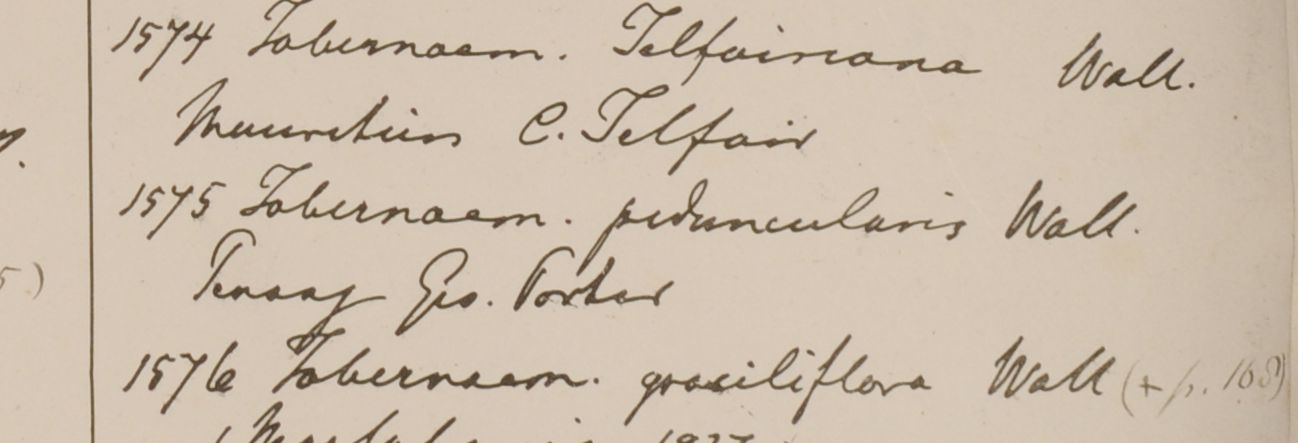 1574 Tabernaem. Telfairiana Wall.
Mauritius C. Telfair
1575 Tabernaem. peduncularis Wall.
Penang Geo. Porter
1576 Tabernaem. graciliflora Wall (+ p. 108)
1827